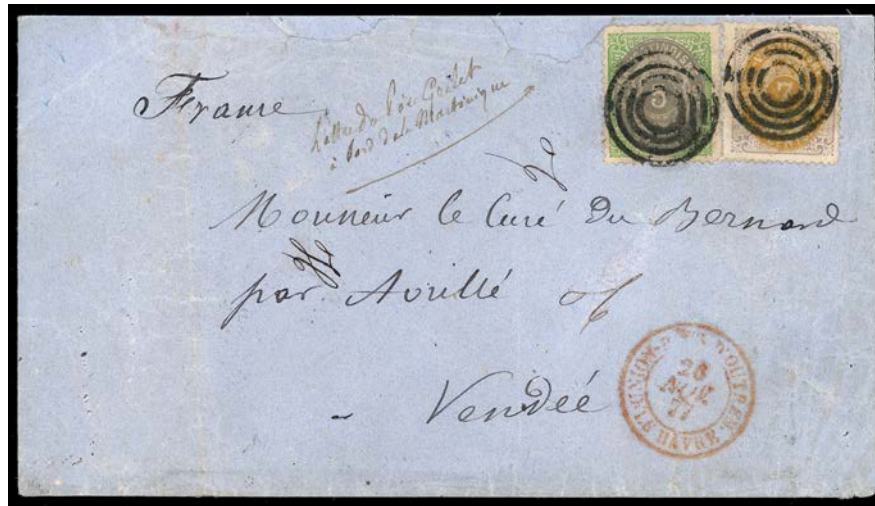 France
Lettre du Père
à bord de la Martinique
Monsieur le Curé du Bernard
par Avrillé
Vendée
5
7
D'OUTREM.
28
77
HAVRE